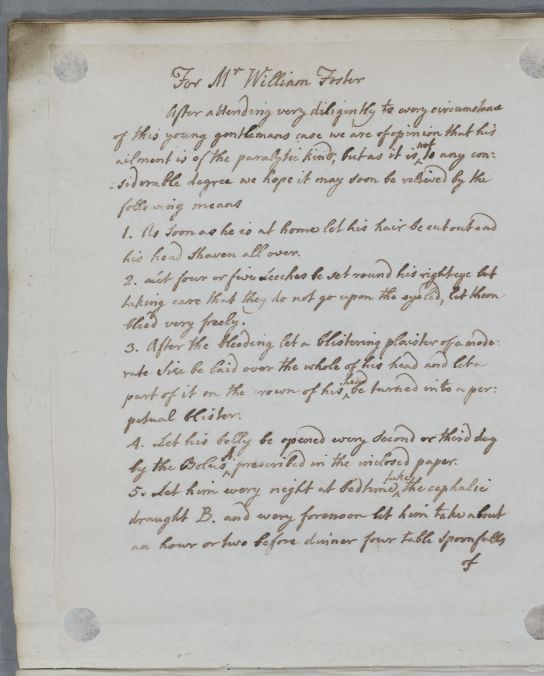 For Mr William Foster
After attending very diligently to every circumstance
of this young gentlemans case we are of opinion that his
ailment is of the paralytic kind, but as it is not to any con-
:siderable degree we hope it may soon be relieved by the
following means
1. As soon as he is at home let his hair be cut out and
his head shaven all over.
2. Let four or five Leeches be set round his right eye but
taking care that they do not go upon the eyelid, let them
bleed very freely.
3. After the bleeding let a blistering plaister of a mode-
rate size be laid over the whole of his head and let a
part of it on the crown of his head be turned into a per:
petual blister.
4. Let his belly be opened every second or third day
by the Bolus A. prescribed in the inclosed paper.
5. Let him every night at bedtime take the cephalic
draught B. and every forenoon let him take about
an hour or two before dinner four table spoonfulls
of